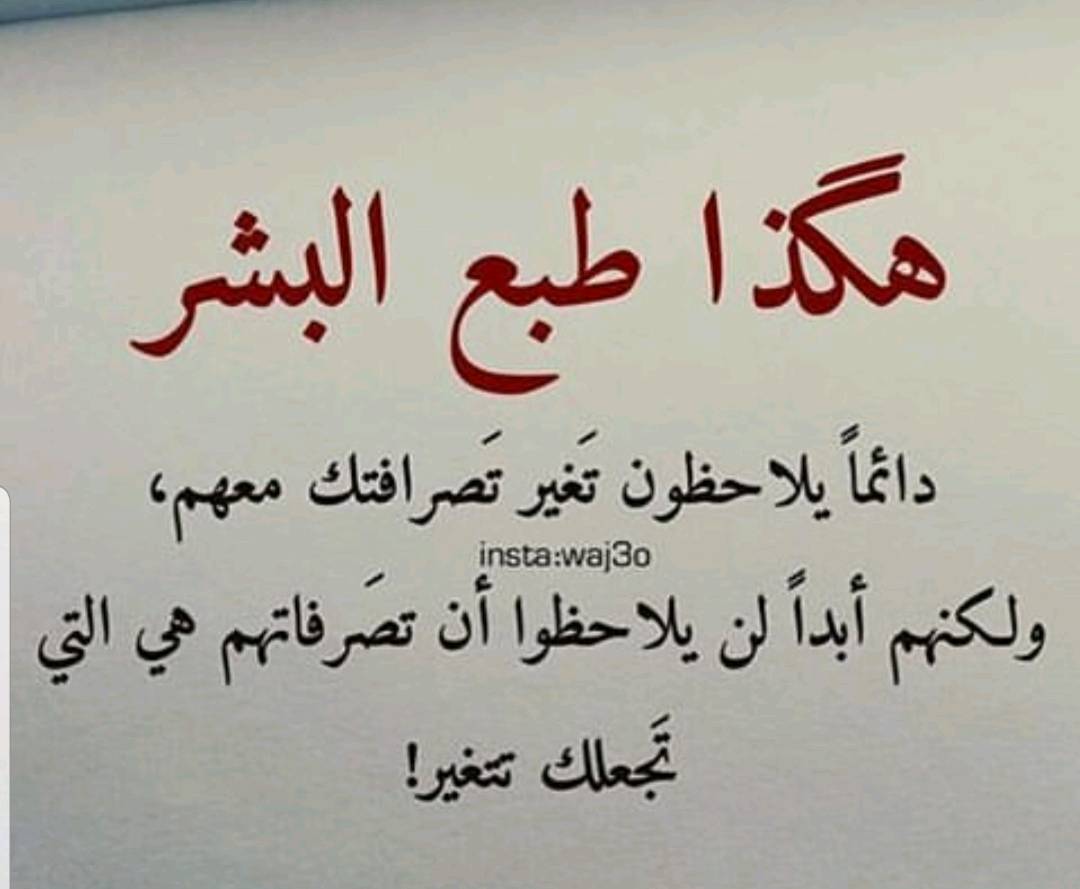 هگذا طبع البشر
دائماً يلاحظون تَغير تَصرافتك معهم،
insta:waj3o
ولكنهم أبداً لن يلاحظوا أن تصَرفاتهم هي التي
تَجعلك تتغير!